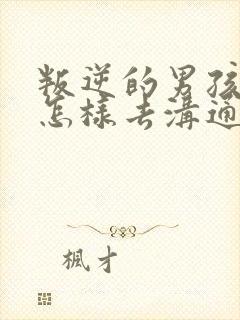 叛逆的男孩
怎樣去溝通
楓才